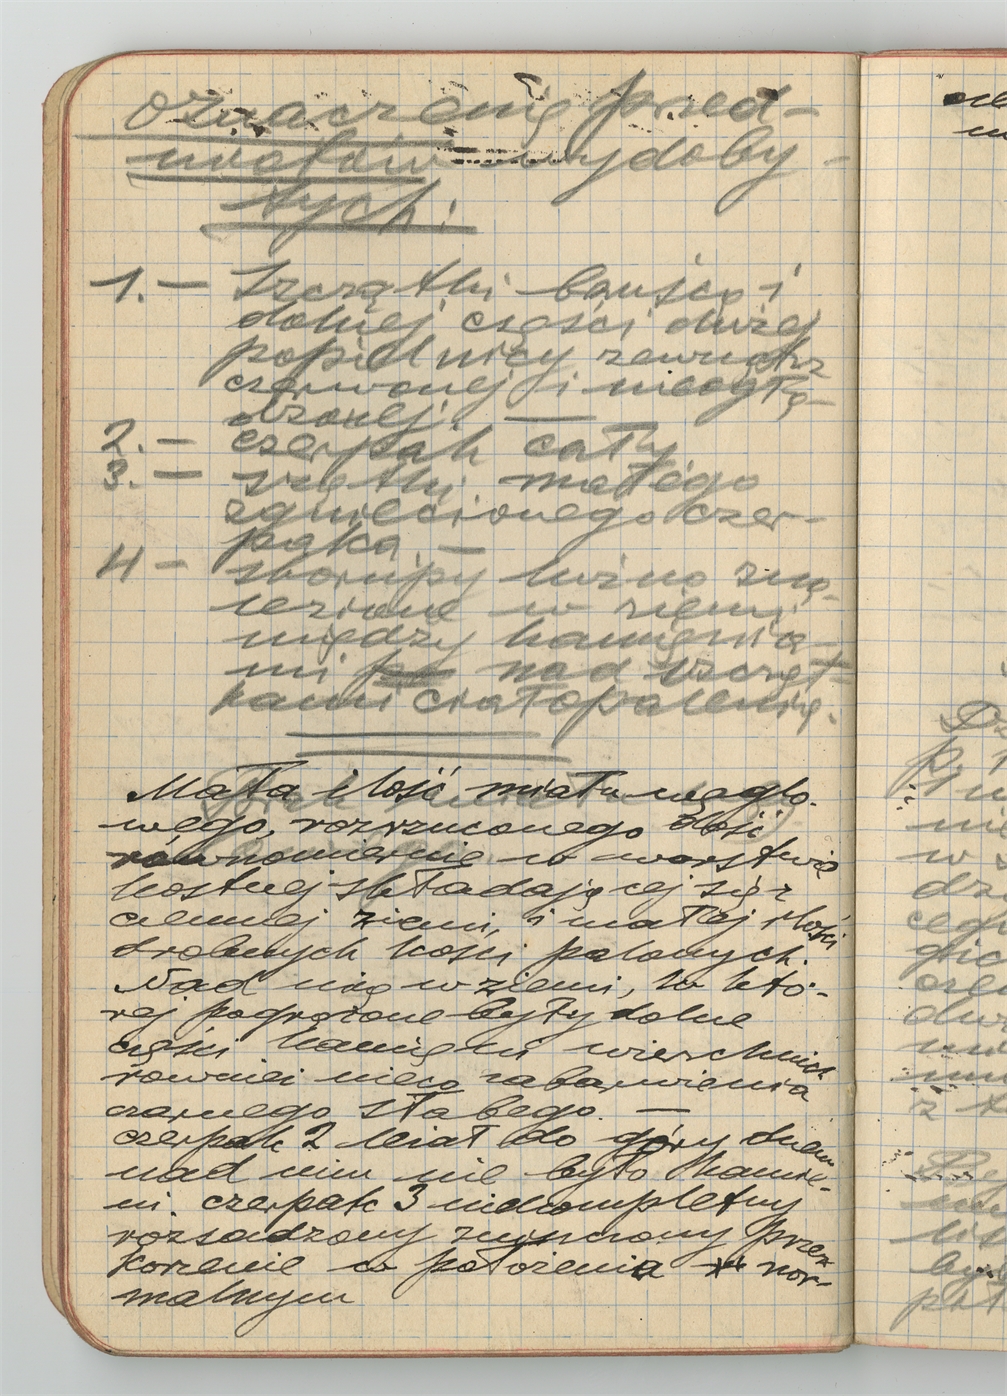 oznaczenie przed-
miotów wydoby-
tych:
1. — Szczątki brzuśca i
dolnej części dużej
popielnicy zewnątrz
czerwonej i niewygła-
dzonej. —
2. — czerpak cały
3. — szczątki małego
zgniecionego czer-
paka. —
4 — skorupy luźno zna-
lezione w ziemi
między kamienia-
mi nad szcząt-
kami ciałopalenia.
Mała ilość miału węglo-
wego, rozrzuconego dość
równomiernie w warstwie
kostnej składającej się z
ciemnej ziemi, i małej ilości
drobnych kości palonych.
Nad nią w ziemi, w któ-
rej pogrążone były dolne
części kamieni wierzchnich
również nieco zabarwienia
czarnego słabego. —
czerpak 2 leżał do góry dnem
nad nim nie było kamie-
ni. czerpak 3 niekompletny
rozsadzony zniszczony przez
korzenie w położeniu nor-
malnym